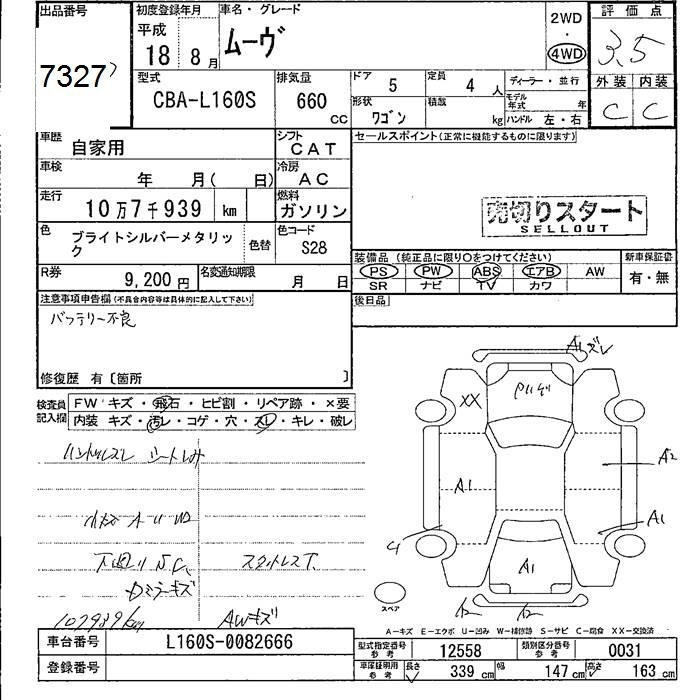 出品番号
7327
初度登録年月
平成
18 8月
車名・グレード
ムーヴ
2WD
・
4WD
評価点
3.5
外装 内装
C C
型式
CBA-L160S
排気量
660
cc
ドア 5
定員 4 人
形状
ワゴン
積載
kg
ディーラー・並行
モデル年式 年
ハンドル 左・右
車歴
自家用
シフト
CAT
車検
年 月( 日)
冷房
AC
走行
10万7千939 km
燃料
ガソリン
色
ブライトシルバーメタリッ
ク
色替
色コード
S28
R券
9,200円
名変通知期限
月 日
セールスポイント(正常に機能するものに限ります)
売切りスタート
SELLOUT
装備品(純正品に限り○をつけてください)
PS PW ABS エアB AW
SR ナビ TV カワ
新車保証書
有・無
後日品
注意事項申告欄(不具合内容等は具体的に記入して下さい)
バッテリー不良
修復歴 有〔箇所 〕
検査員
記入欄
FW キズ・飛石・ヒビ割・リペア跡・×要
内装 キズ・汚レ・コゲ・穴・スレ・キレ・破レ
ハンドルスレ
107939km
AWキズ
XX
A1
A2
A1
A1
スペア
A-キズ E-エクボ U-凹み W-補修跡 S-サビ C-腐食 XX-交換済
車台番号 L160S-0082666
登録番号
型式指定番号
参考
12558
類別区分番号
参考
0031
車庫証明用
参考
長さ 339 cm 幅 147 cm 高さ 163 cm